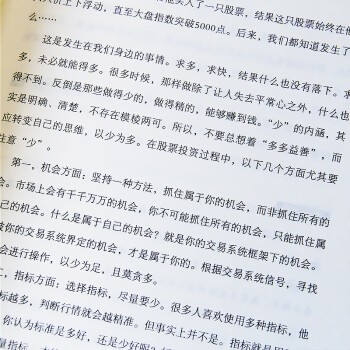 买入了一只股票，结果这只股票始终在他
价上下浮动，直至大盘指数突破5000点。后来，我们都知道发生了
么……
这是发生在我们身边的事情。求多，求快，结果什么也没有落下。求
多，未必就能得多。很多时候，那样做除了让人失去平常心之外，什么也
得不到。反倒是那些做得少的，做得精的，能够赚到钱。“少”的内涵，其
实是明确、清楚，不存在模棱两可。所以，不要总想着“多多益善”，而
应转变自己的思维，以少为多。在股票投资过程中，以下几个方面尤其要
注意“少”。
第一，机会方面：坚持一种方法，抓住属于你的机会，而非抓住所有的
会。市场上会有千千万万的机会，你不可能抓住所有的机会，只能抓住属
己的机会。什么是属于自己的机会？就是你的交易系统框架下的机会。
被你的交易系统界定的机会，才是属于你的。根据交易系统信号，寻找
会进行操作，以少为足，且莫贪多。
，指标方面：选择指标，尽量要少。很多人喜欢使用多种指标，他
标越多，判断行情就会越精准。但事实上并不是。指标就是
你认为标准是多好，还是少好呢？
量指标，